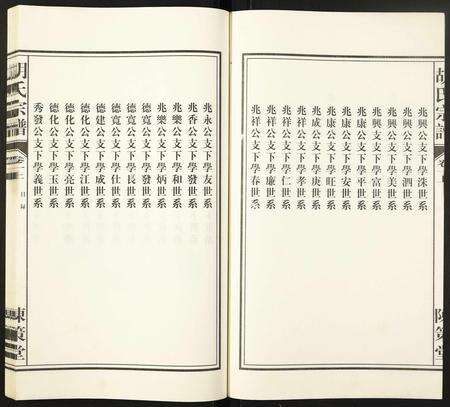 胡氏宗譜
兆興公支下學洙世系
兆興公支下學泗世系
兆興公支下學美世系
兆興公支下學富世系
兆康公支下學平世系
兆康公支下學安世系
兆康公支下學旺世系
兆成公支下學庚世系
兆祥公支下學孝世系
兆祥公支下學仁世系
兆祥公支下學廉世系
兆祥公支下學春世系
兆永公支下學友世系
兆香公支下學發世系
兆樂公支下學和世系
兆樂公支下學炳世系
德寬公支下學發世系
德寬公支下學長世系
德寬公支下學仕世系
德建公支下學成世系
德化公支下學江世系
德化公支下學亮世系
德化公支下學玉世系
秀發公支下學義世系
胡氏宗譜
目錄
陳策堂